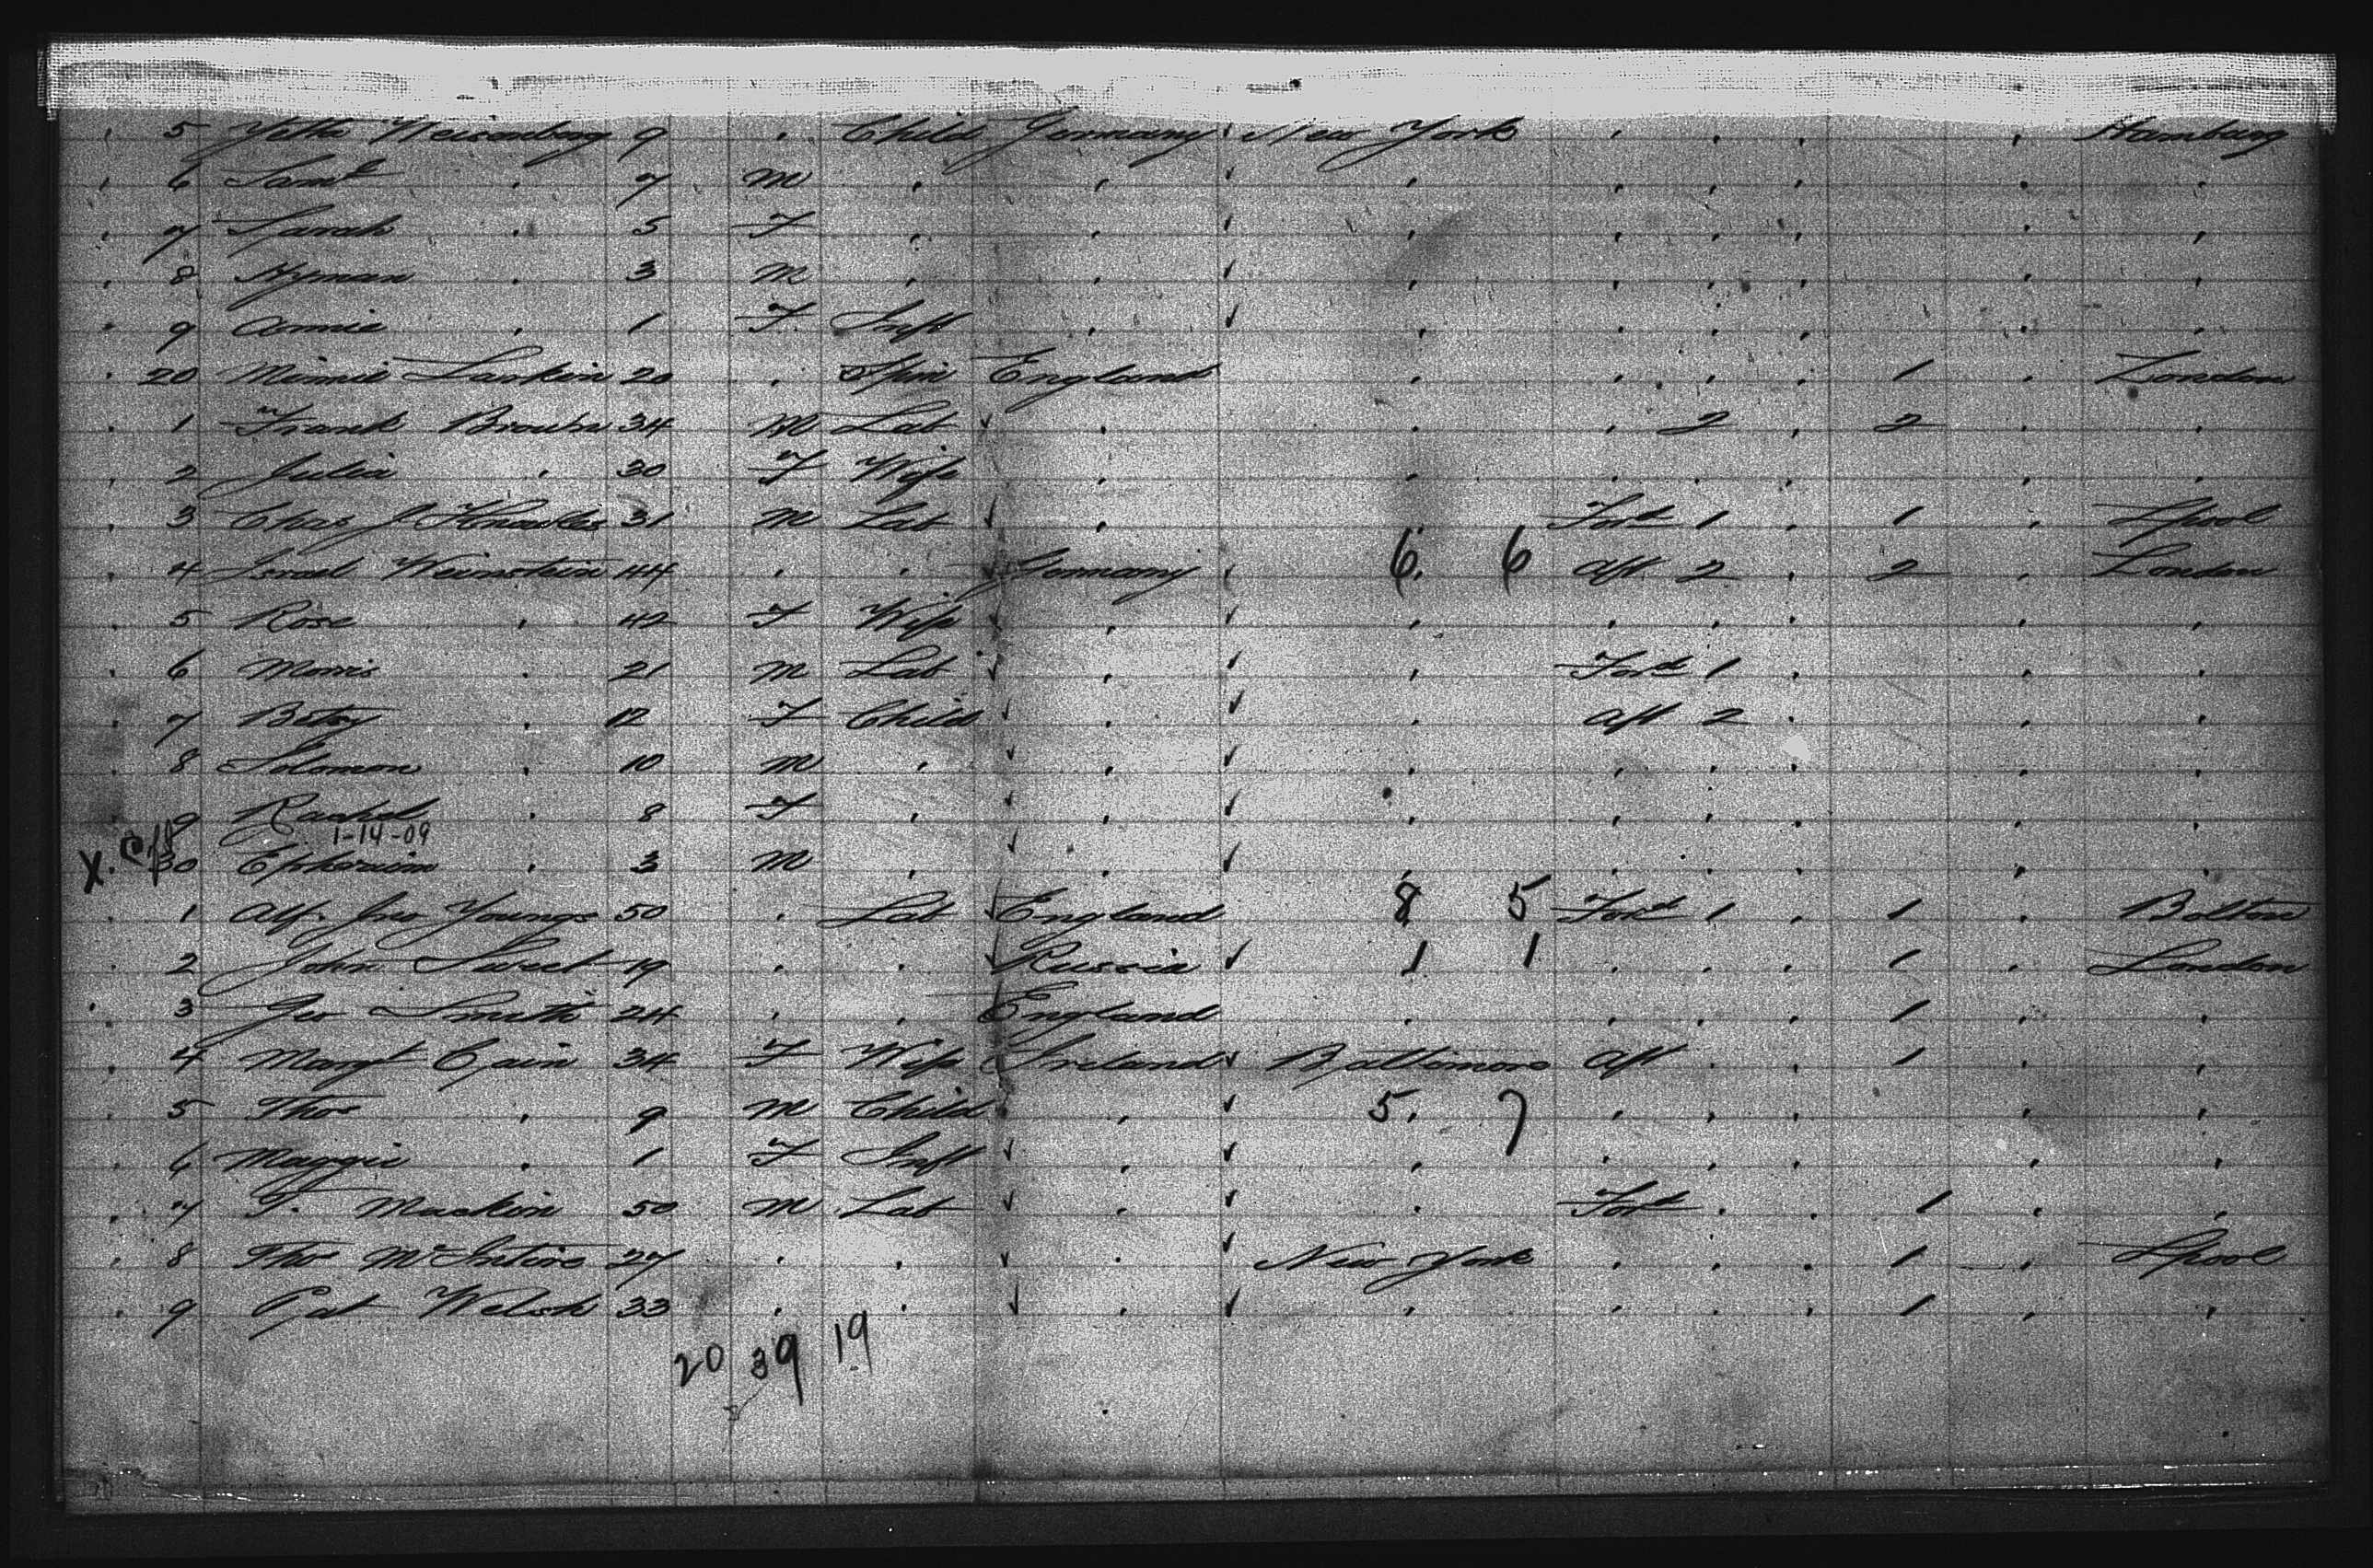 5 Yetta Weisenberg 9 " Child Germany New York " " " " Hamburg
6 Saml " 7 M " " " " " " " "
7 Sarah " 5 F " " " " " " " "
8 Hyman " 3 M " " " " " " " "
9 Annie " 1 F Inft " " " " " " "
20 Minnie Larkin 20 " Spin England " " " " 1 " London
1 Frank Brown 34 M Lab " " " 2 " 2 " "
2 Julia " 30 F Wife " " " " " " "
3 Chas J. Knowles 31 M Lab " Ford 1 " 1 " Lpool
4 Israel Weinstein 44 " " Germany 6 6 Aft 2 " 2 " London
5 Rose " 42 F Wife " " " " " " "
6 Morris " 21 M Lab " " Ford 1 " " "
7 Betsy " 12 F Child " " Aft 2 " " "
8 Solomon " 10 M " " " " " " " "
9 Rachel " 8 F " " " " " " " "
1-14-09
X. 30 Ephraim " 3 M " " " " " " " "
1 Alf. Jno Youngs 50 " Lab England 8 5 Ford 1 " 1 " Bolton
2 John Sweet 19 " " Russia 1 1 " " " 1 " London
3 Geo Smith 24 " " England " " " " 1 " "
4 Margt Cain 34 F Wife Ireland Baltimore Aft " " 1 "
5 Thos " 9 M Child " 5 7 " " " " "
6 Maggie " 1 F Inft " " " " " " "
7 T. Mackin 50 M Lab " " Ford " " 1 " "
8 Thos McIntire 27 " " " New York " " " 1 " Lpool
9 Pat Welsh 33 " " " " " " " 1 " "
20 39 19